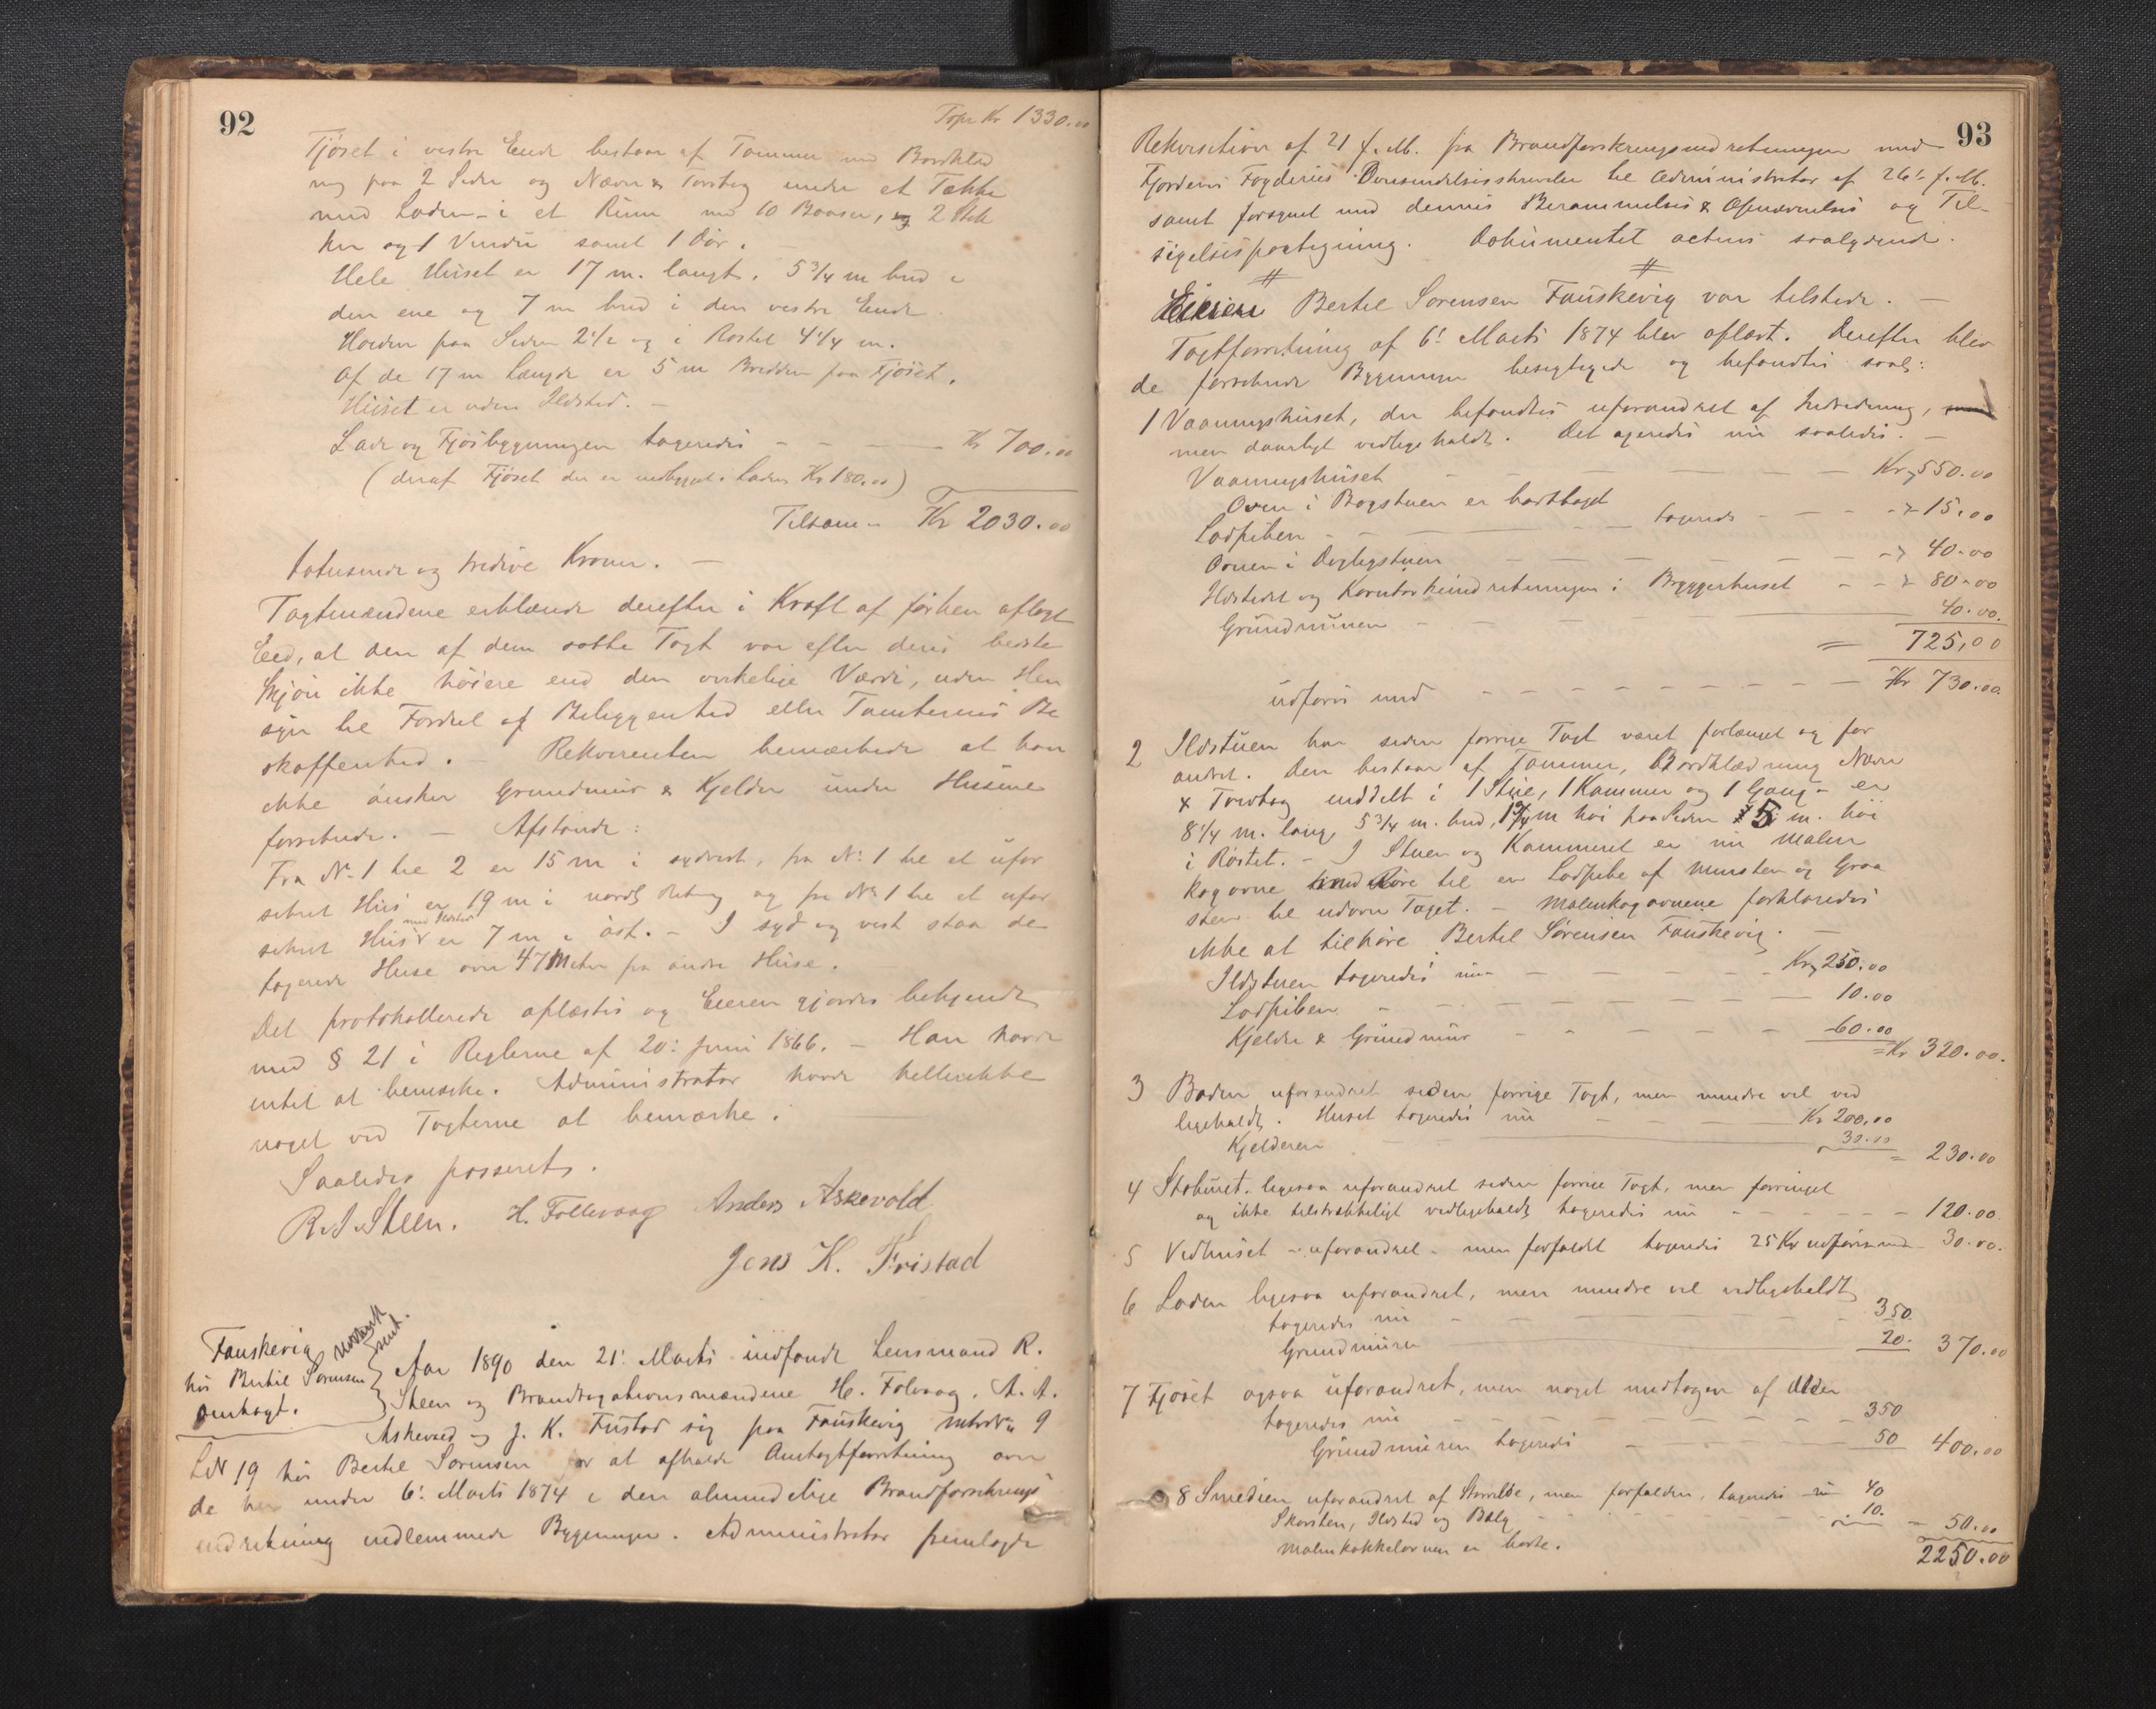 92
Tspr Kr 1330.00
Fjöset i vestre Ende bestaar af Tømmer med Bordklæd
ning paa 2 Sider og Næver & Torvtag under et Tække
med Laden i et Rum med 10 Baaser, og 2 Stk
ker og 1 Vindu samt 1 Dör.
Hele Huset er 17 m. langt. 5 3/4 m bred i
den ene og 7 m bred i den vestre Ende
Höiden paa Siden 2 1/2 og i Röstet 4 1/4 m.
Af de 17 m Længde er 5 m Bredden paa Fjöset.
Huset er uden Ildsted. –
Lade og Fjösbygningen taxeredes - - — Kr 700.00
(deraf Fjöset der er indbygget i Laden Kr 180.00)
Tilsam- Kr 2030.00
totusende og tredive Kroner. –
Taxtmændene erklærede derefter i Kraft af forhen aflagt
Eed, at den af dem satte Taxt var efter deres bedste
Skjön ikke höiere end den virkelige Værdi, uden Hen
syn til Fordel af Beliggenhed eller Tomternes Be
skaffenhed. – Rekvirenten bemærkede at han
ikke önsker Grundmur & Kjelder under Husene
forsikrede. – Afstande:
Fra No 1 til 2 er 15 m i sydvest, fra No 1 til et ufor
sikret Hus er 19 m i nordl Retning og fra No 1 til et ufor
sikret Hus med Ildsted er 7 m i öst. – I syd og vest staa de
taxerede Huse over 47 Meter fra andre Huse.
Det protokollerede oplæstes og Eieren gjordes bekjendt
med § 21 i Reglerne af 20: Juni 1866. – Han havde
intet at bemærke. Administrator havde hellerikke
noget ved Taxterne at bemærke.
Saaledes passeret.
R. J. Steen. H. Follevaag Anders Askevold
Jens K. Fristad
Fauskevig
hos Bertil Sörensen
Omtaxt.
Aar 1890 den 21: Marts indfandt Lensmand R.
Steen og Brandtaxationsmændene H. Folvaag, A. A.
Askevold og J. K. Fristad sig paa Fauskevig Matr No 9
LN 19 hos Bertil Sörensen for at afholde Omtaxtforretning over
de her under 6: Marts 1874 i den almindelige Brandforsikrings
indretning indlemmede Bygninger. Administrator fremlagde
93
Rekvisition af 21 f. M. fra Brandforsikringsindretningen med
Fjordenes Fogderies Oversendelsesskrivelse til Administrator af 26 f. M.
samt forsynet med dennes Berammelses & Opnævnelses og Til-
sigelsespaategning. Dokumentet acteres saalydende.
Eieren Bertel Sörensen Fauskevig var tilstede. –
Taxtforretning af 6: Marts 1874 blev oplæst. Derefter blev
de forsikrede Bygninger besigtigede og befandtes saal:
1 Vaaningshuset, der befandtes uforandret af Indredning,
men daarligt vedligeholdt. Det taxeredes nu saaledes. –
Vaaningshuset - - — Kr 550.00
Oven i Bagstuen er borttaget
Ladpiben - - - taxereds - - - 15.00
Ovnen i Daglegstuen - - - 40.00
Ildstedet og Korntörkeindretningen i Bryggerhuset - - 80.00
Grundmuren - - - 40.00.
= 725,00
udföres med - - - Kr 730.00.
2 Ildstuen har siden forrige Taxt været forlænget og for
andret. Den bestaar af Tømmer, Bordklædning Næver
& Torvtag inddelt i 1 Stue, 1 Kammer og 1 Gang – er
8 1/4 m. lang 5 3/4 m. bred, m höi paa Siden 5 m. höi
i Röstet. – I Stuen og Kammeret er nu Malm
kogovne med Röre til en Ladpibe af Mursten og Graa
sten til udover Taget. – Malmkogovnene forklaredes
ikke at tilhöre Bertel Sörensen Fauskevig. –
Ildstuen taxeredes nu - - - Kr 250.00
Ladpiben - - - 10.00
Kjelder & Grundmur - - - 60.00
= Kr 320.00.
3 Boden uforandret siden forrige Taxt, men mindre vel ved
ligeholdt. Huset taxeredes nu - - Kr 200,00
Kjelderen - - 30.00
= 230.00
4 Staburet. ligesaa uforandret siden forrige Taxt, men forringet
og ikke tilstrækkeligt vedligeholdt taxeredes nu - - - 120.00
5 Vedhuset – uforandret – men forfaldet taxeredes 25 Kr udföres med 30.00.
6 Laden ligesaa uforandret, men mindre vel vedligeholdt
taxeredes nu - - - 350
Grundmuren - - - 20. 370.00
7 Fjöset ogsaa uforandret, men noget medtagen af Alder
taxeredes nu - - - 350
Grundmuren taxeredes - - 50 400.00
8 Smedien uforandret af Störrelse, men forfalden, taxeredes nu 40
Skorsten, Ildsted og Bælg - - - 10. – 50.00
Malmkakkelovnen er borte.
2250.00